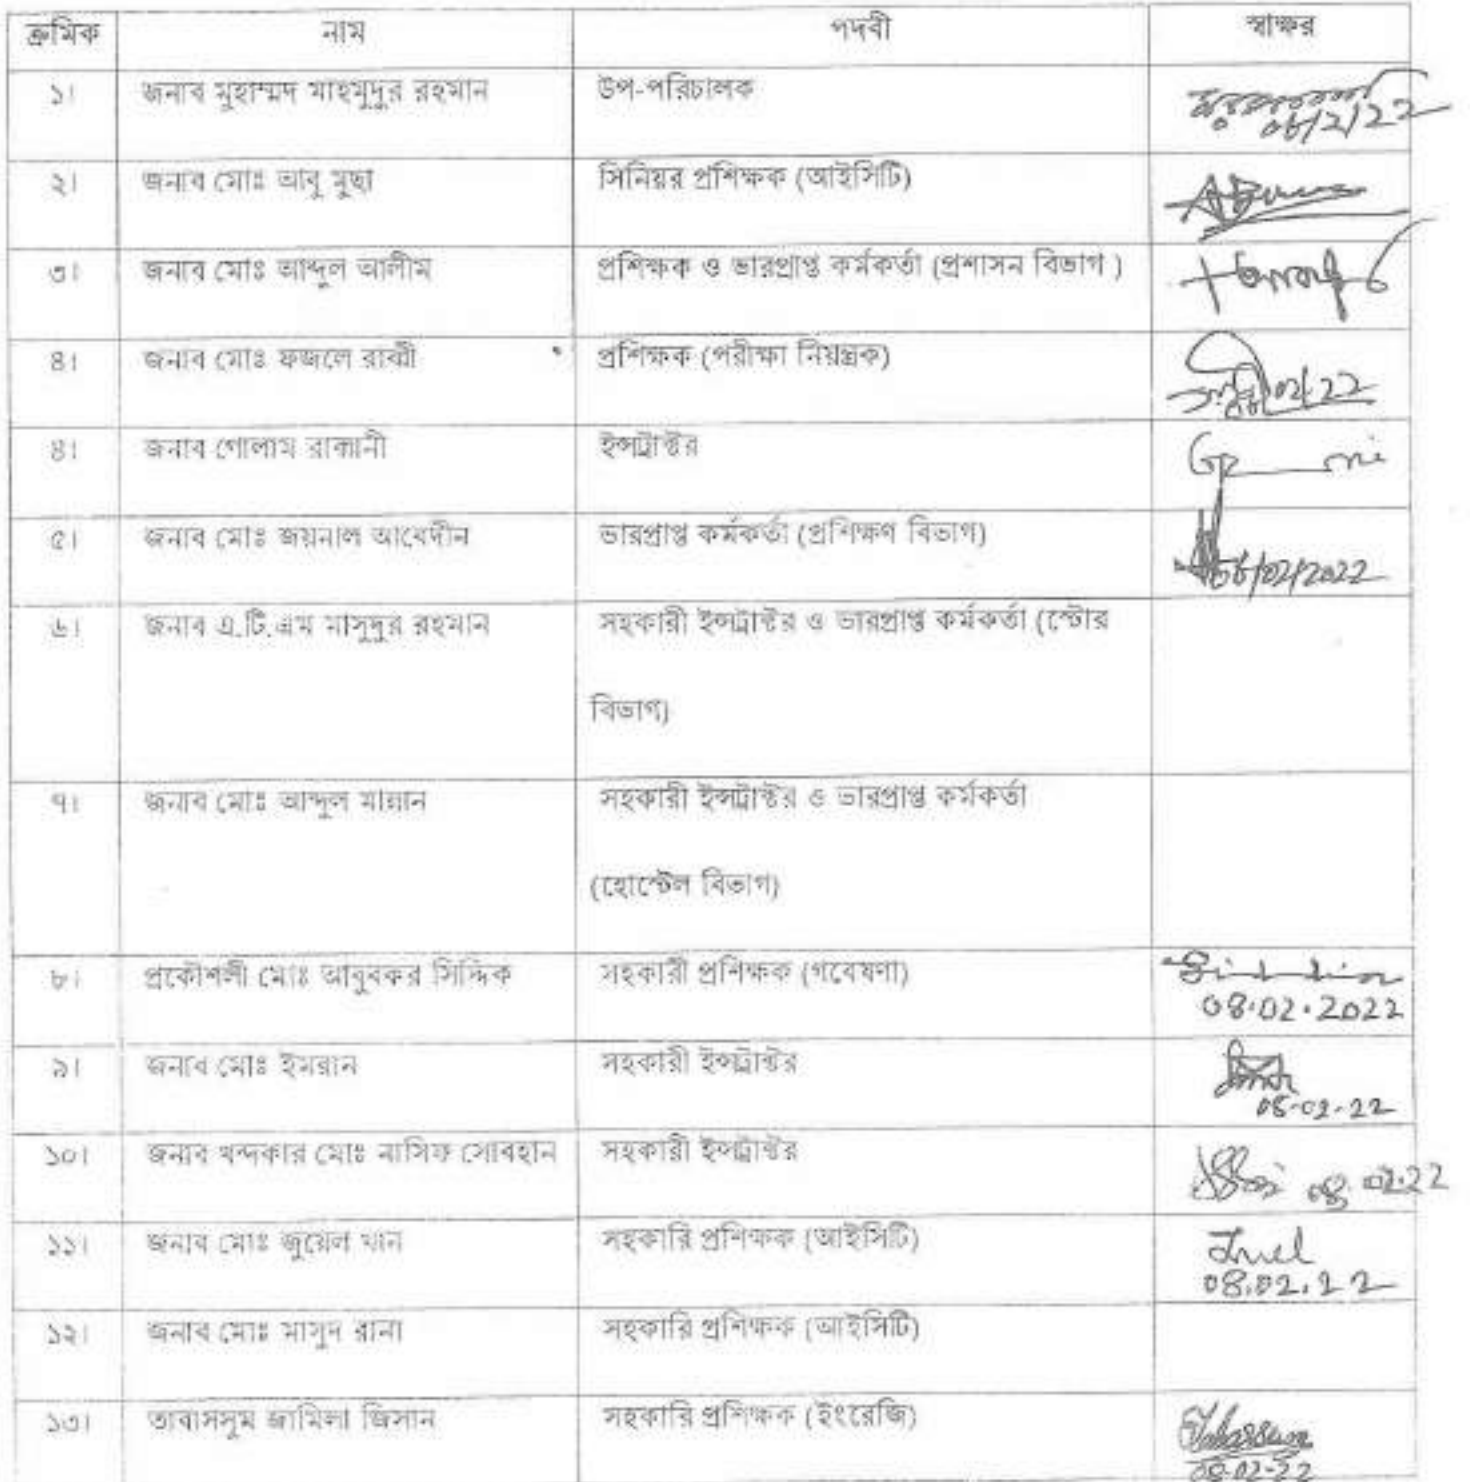 ক্রমিক নাম পদবী স্বাক্ষর
১। জনাব মুহাম্মদ মাহমুদুর রহমান উপ-পরিচালক ০৮/২/২২
২। জনাব মোঃ আবু মুছা সিনিয়র প্রশিক্ষক (আইসিটি)
৩। জনাব মোঃ আব্দুল আলীম প্রশিক্ষক ও ভারপ্রাপ্ত কর্মকর্তা (প্রশাসন বিভাগ )
৪। জনাব মোঃ ফজলে রাব্বী প্রশিক্ষক (পরীক্ষা নিয়ন্ত্রক)
৪। জনাব গোলাম রাব্বানী ইন্সট্রাক্টর
৫। জনাব মোঃ জয়নাল আবেদীন ভারপ্রাপ্ত কর্মকর্তা (প্রশিক্ষণ বিভাগ) 08/02/2022
৬। জনাব এ.টি.এম মাসুদুর রহমান সহকারী ইন্সট্রাক্টর ও ভারপ্রাপ্ত কর্মকর্তা (স্টোর
বিভাগ)
৭। জনাব মোঃ আব্দুল মান্নান সহকারী ইন্সট্রাক্টর ও ভারপ্রাপ্ত কর্মকর্তা
(হোস্টেল বিভাগ)
৮। প্রকৌশলী মোঃ আবুবকর সিদ্দিক সহকারী প্রশিক্ষক (গবেষণা)
08.02.2022
৯। জনাব মোঃ ইমরান সহকারী ইন্সট্রাক্টর
08-02-22
১০। জনাব খন্দকার মোঃ নাসিফ সোবহান সহকারী ইন্সট্রাক্টর 08.02.22
১১। জনাব মোঃ জুয়েল খান সহকারি প্রশিক্ষক (আইসিটি) Juel
08.02.22
১২। জনাব মোঃ মাসুদ রানা সহকারি প্রশিক্ষক (আইসিটি)
১৩। তাবাসসুম জামিলা জিসান সহকারি প্রশিক্ষক (ইংরেজি) Tabassum
08-02-22